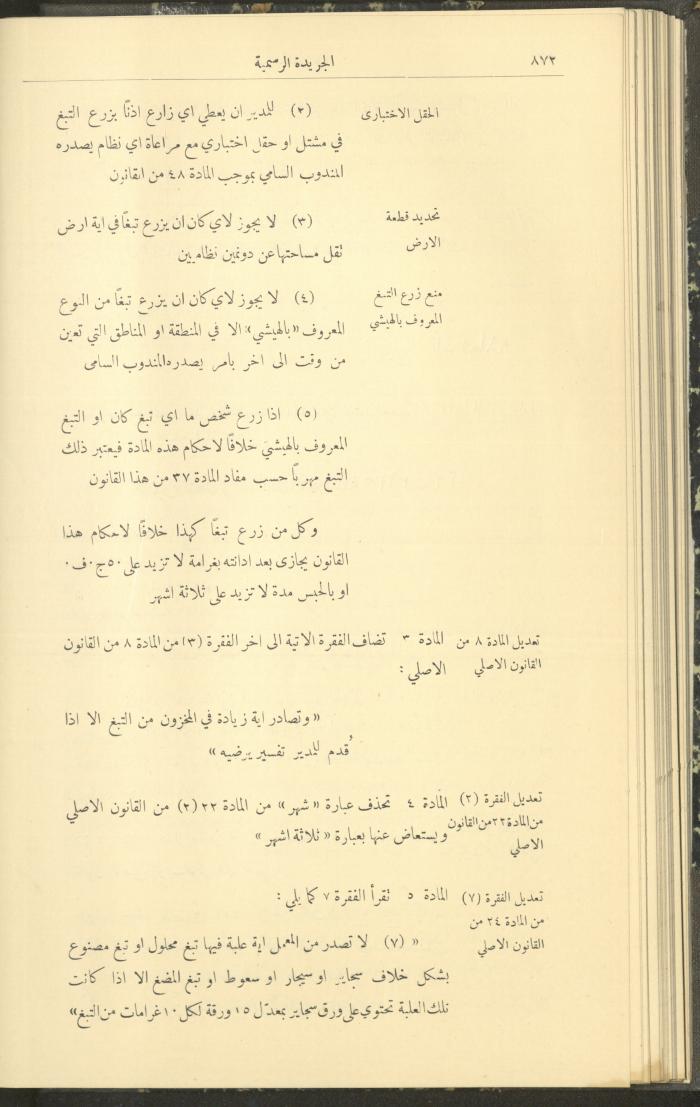 ٨٧٢
الجريدة الرسمية
الحقل الاختبارى
(٢) للمدير ان يعطي اي زارع اذنًا بزرع التبغ
في مشتل او حقل اختباري مع مراعاة اي نظام يصدره
المندوب السامي بموجب المادة ٤٨ من القانون
تحديد قطعة
الارض
(٣) لا يجوز لاي كان ان يزرع تبغًا في اية ارض
تقل مساحتها عن دونمين نظاميين
منع زرع التبغ
المعروف بالهيشي
(٤) لا يجوز لاي كان ان يزرع تبغًا من النوع
المعروف «بالهيشي» الا في المنطقة او المناطق التي تعين
من وقت الى اخر بامر يصدره المندوب السامى
(٥) اذا زرع شخص ما اي تبغ كان او التبغ
المعروف بالهيشي خلافًا لاحكام هذه المادة فيعتبر ذلك
التبغ مهربًا حسب مفاد المادة ٣٧ من هذا القانون
وكل من زرع تبغًا كهذا خلافًا لاحكام هذا
القانون يجازى بعد ادانته بغرامة لا تزيد على ٥٠ ج٠ف٠
او بالحبس مدة لا تزيد على ثلاثة اشهر
تعديل المادة ٨ من
القانون الاصلي
المادة ٣ تضاف الفقرة الاتية الى اخر الفقرة (٣) من المادة ٨ من القانون
الاصلي :
«وتصادر اية زيادة في المخزون من التبغ الا اذا
قُدم للمدير تفسير يرضيه»
تعديل الفقرة (٢)
من المادة ٢٢ من القانون
الاصلي
المادة ٤ تحذف عبارة «شهر» من المادة ٢٢ (٢) من القانون الاصلي
ويستعاض عنها بعبارة «ثلاثة اشهر»
تعديل الفقرة (٧)
من المادة ٢٤ من
القانون الاصلي
المادة ٥ تقرأ الفقرة ٧ كما يلي :
«(٧) لا تصدر من المعمل اية علبة فيها تبغ محلول او تبغ مصنوع
بشكل خلاف سجاير او سيجار او سعوط او تبغ المضغ الا اذا كانت
تلك العلبة تحتوي على ورق سجاير بمعدّل ١٥ ورقة لكل ١٠ غرامات من التبغ»